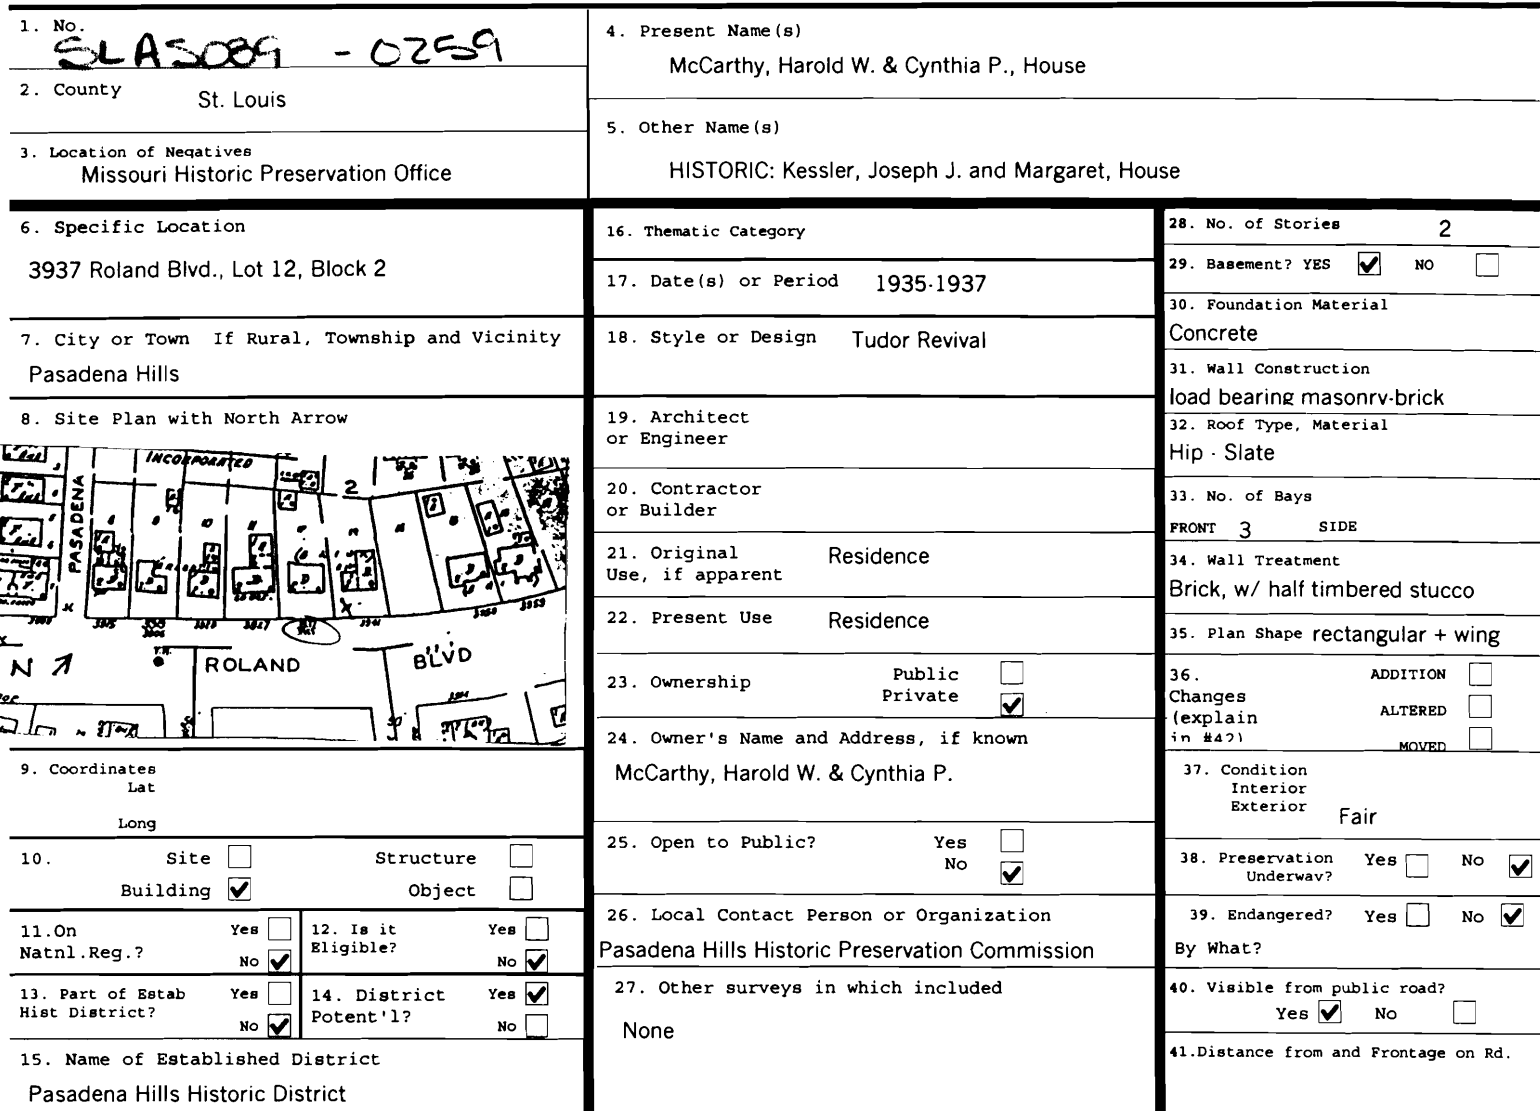 1. No.
SLAS089 - 0259
2. County
St. Louis
3. Location of Negatives
Missouri Historic Preservation Office
4. Present Name(s)
McCarthy, Harold W. & Cynthia P., House
5. Other Name(s)
HISTORIC: Kessler, Joseph J. and Margaret, House
6. Specific Location
3937 Roland Blvd., Lot 12, Block 2
7. City or Town If Rural, Township and Vicinity
Pasadena Hills
8. Site Plan with North Arrow
INCORPORATED
2
PASADENA
N
ROLAND
BLVD
9. Coordinates
Lat
Long
10. Site
Structure
Building
Object
11.On Yes
Natnl.Reg.?
No
12. Is it Yes
Eligible?
No
13. Part of Estab Yes
Hist District?
No
14. District Yes
Potent'l?
No
15. Name of Established District
Pasadena Hills Historic District
16. Thematic Category
17. Date(s) or Period 1935-1937
18. Style or Design Tudor Revival
19. Architect
or Engineer
20. Contractor
or Builder
21. Original Residence
Use, if apparent
22. Present Use Residence
23. Ownership Public
Private
24. Owner's Name and Address, if known
McCarthy, Harold W. & Cynthia P.
25. Open to Public? Yes
No
26. Local Contact Person or Organization
Pasadena Hills Historic Preservation Commission
27. Other surveys in which included
None
28. No. of Stories 2
29. Basement? YES NO
30. Foundation Material
Concrete
31. Wall Construction
load bearing masonry-brick
32. Roof Type, Material
Hip - Slate
33. No. of Bays
FRONT 3 SIDE
34. Wall Treatment
Brick, w/ half timbered stucco
35. Plan Shape rectangular + wing
36. ADDITION
Changes
(explain ALTERED
in #42)
MOVED
37. Condition
Interior
Exterior Fair
38. Preservation Yes No
Underway?
39. Endangered? Yes No
By What?
40. Visible from public road?
Yes No
41.Distance from and Frontage on Rd.